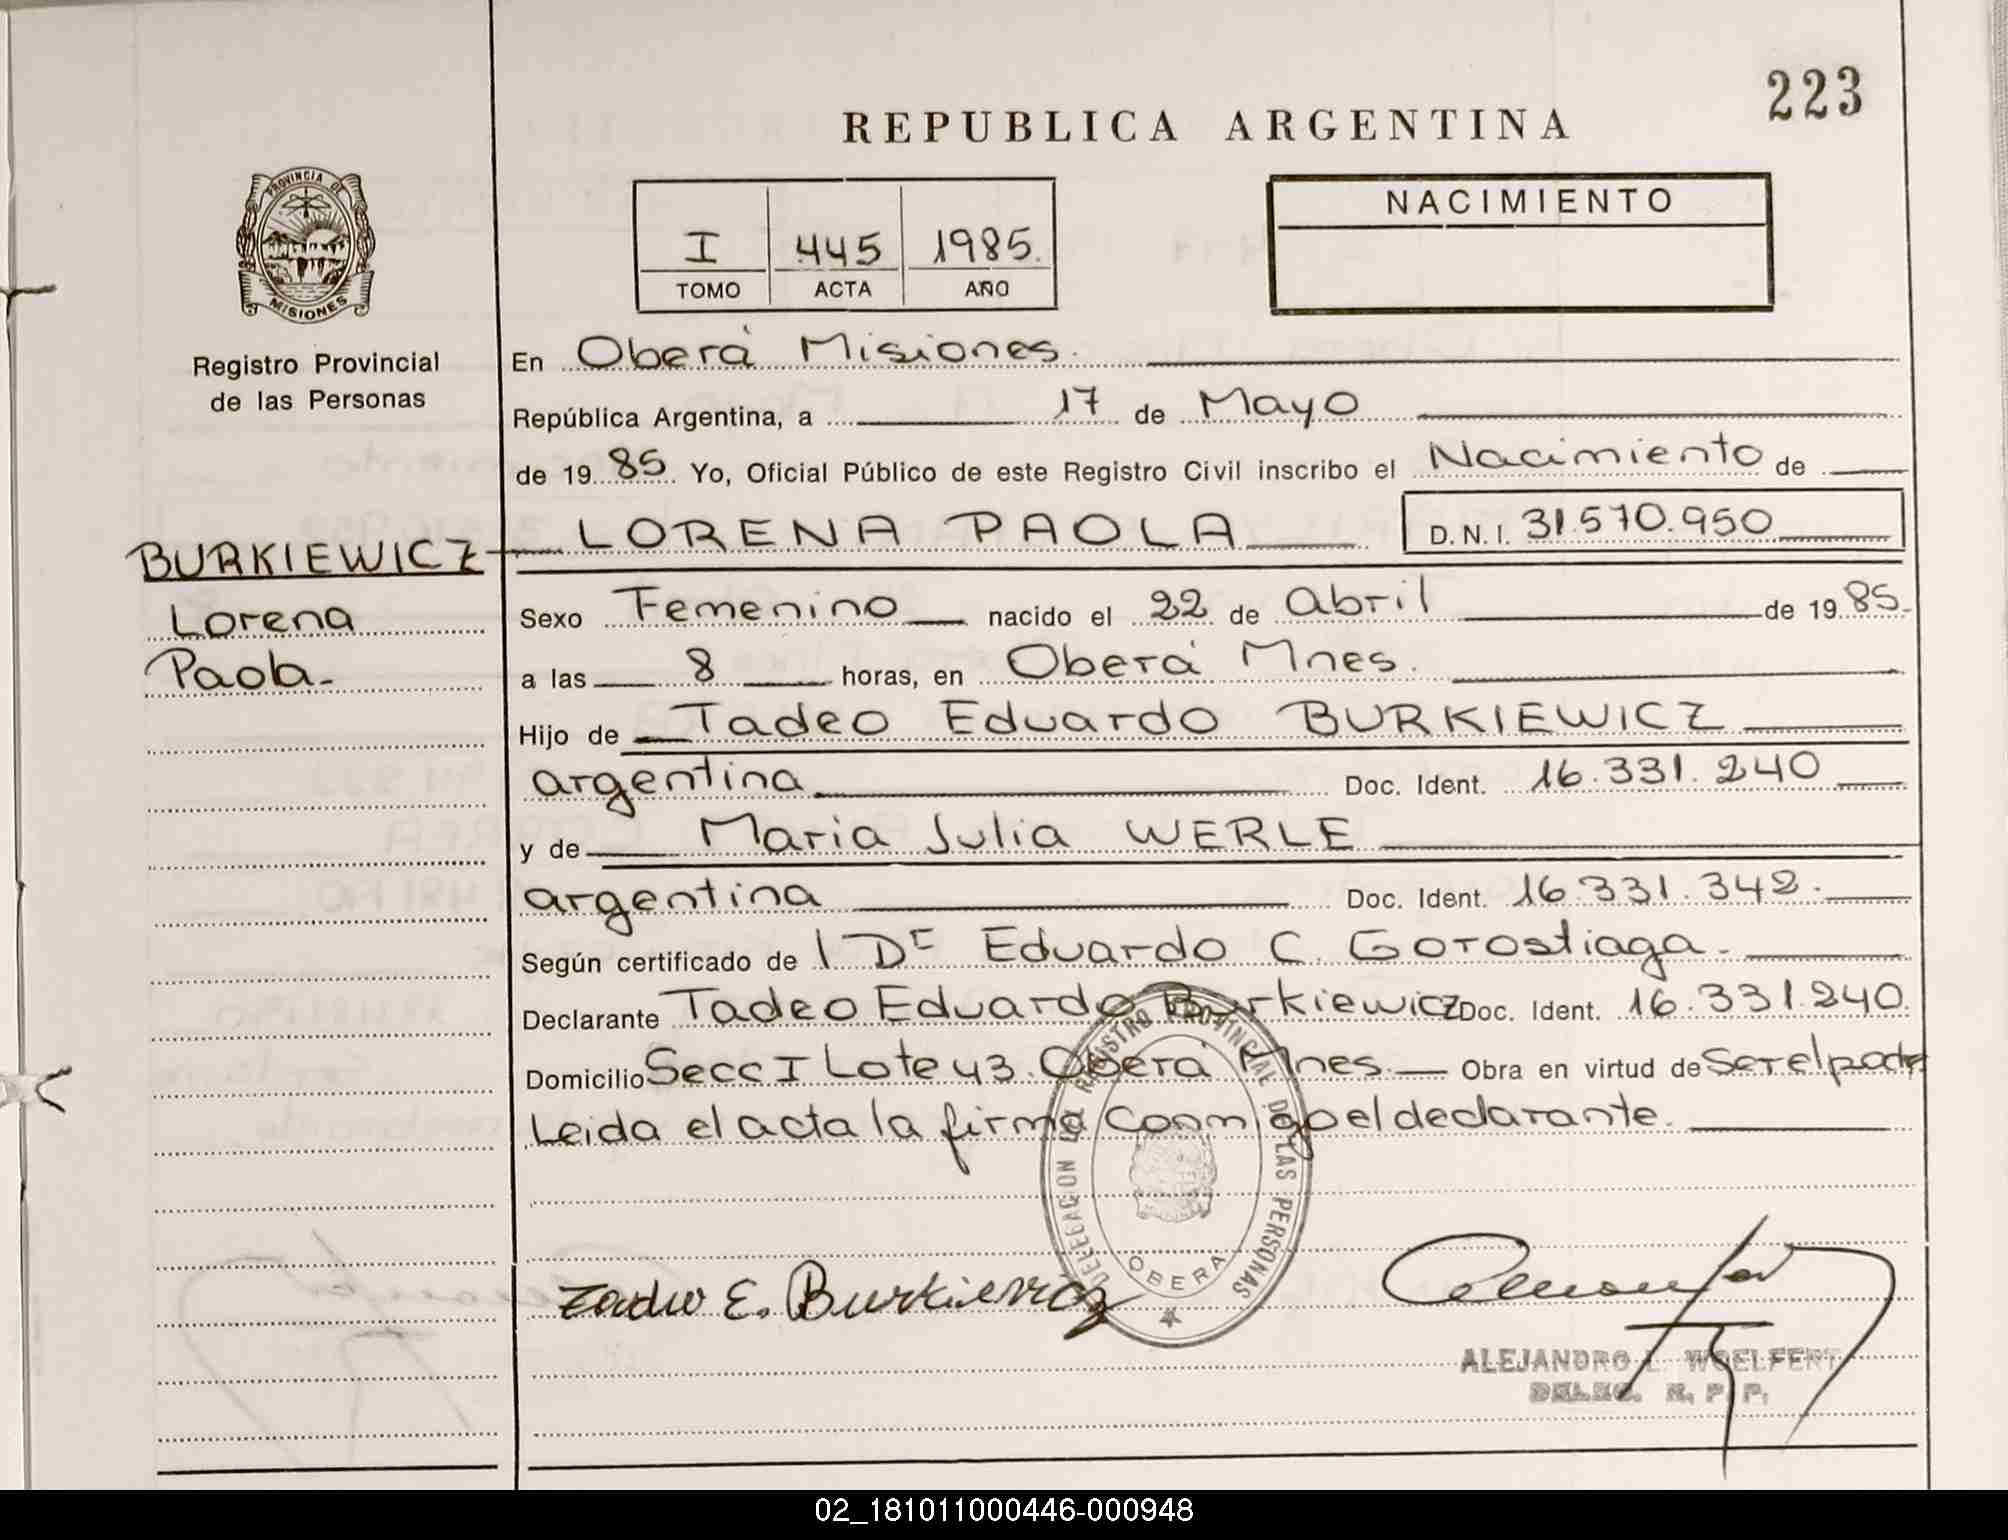 223
REPUBLICA ARGENTINA
PROVINCIA DE
MISIONES
Registro Provincial
de las Personas
I 445 1985.
TOMO ACTA AÑO
NACIMIENTO
En Oberá Misiones.
República Argentina, a 17 de Mayo
de 1985 Yo, Oficial Público de este Registro Civil inscribo el Nacimiento de
BURKIEWICZ LORENA PAOLA D.N.I. 31.570.950
Lorena
Paola.
Sexo Femenino nacido el 22 de abril de 1985.
a las 8 horas, en Oberá Mnes.
Hijo de Tadeo Eduardo BURKIEWICZ
argentina Doc. Ident. 16.331.240
y de Maria Julia WERLE
argentina Doc. Ident. 16.331.342.
Según certificado de l Dr Eduardo C. Gorostiaga.
Declarante Tadeo Eduardo Burkiewicz Doc. Ident. 16.331.240.
Domicilio Secc I Lote 43. Oberá Mnes. Obra en virtud de Ser el padre
Leida el acta la firma conmigo el declarante.
DELEGACION REGISTRO PROVINCIAL DE LAS PERSONAS
OBERA
E. Burkiewicz
ALEJANDRO L. WOELFERT
DELEG. R. P. P.
02_181011000446-000948